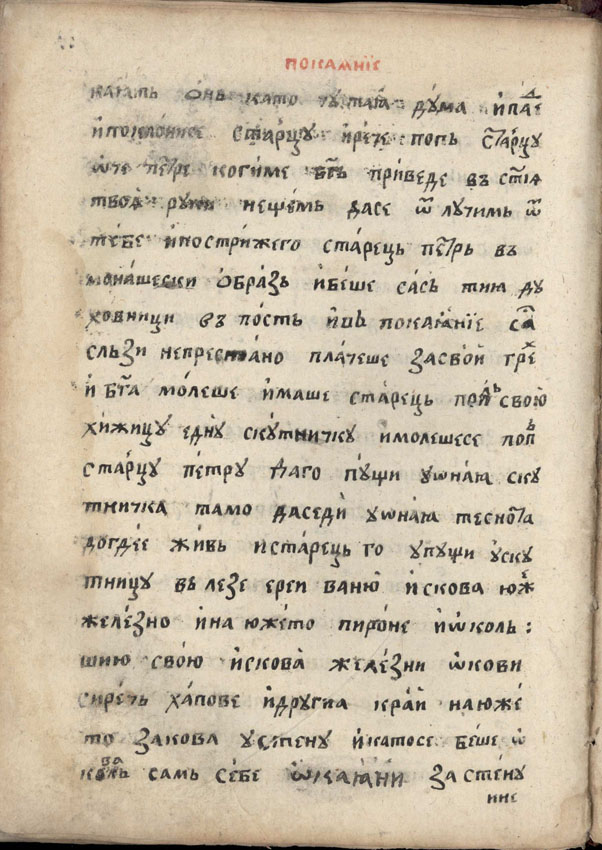 покаꙗнїе
каꙗть ѻнь като чꙋ таꙗ дꙋма и҆паⷣе
и҆поклонисе старцꙋ и҆рече попь старцꙋ
ѿче петре когиме бг҃ь приведе въ ст҃їѧ
твоѧ рꙋки нещемь дасе ѿлꙋчимь ѿ
тебе и҆пострижего старець петрь въ
монашески ѻбразь и҆беше сасъ тиѧ дꙋ
ховници въ пость и҆въ покаꙗнїе са
сльзи непрестано плачеше засвои греⷯ
и҆ бг҃а молеше и҆маше старець поⷣ свою
хижицꙋ еднꙋ скꙋтничкꙋ и҆молешесе попь
старцꙋ петрꙋ даго пꙋщи ꙋѡнаꙗ скꙋ
тничка тамо даседи ꙋѡнаꙗ теснота
догдее живь и҆старець го ꙋпꙋщи ꙋскꙋ
тницꙋ въ лезе ереи ваню и҆скова юже
железно и҆на южето пироне и҆ѡколь:
шию свою и҆скова железни ѡкови
сиречь хапове и҆дрꙋгиа краи на юже
то закова ꙋстенꙋ и҆катосе беше ѡ
ковалъ самь себе ѡкаꙗни за стенꙋ
ние